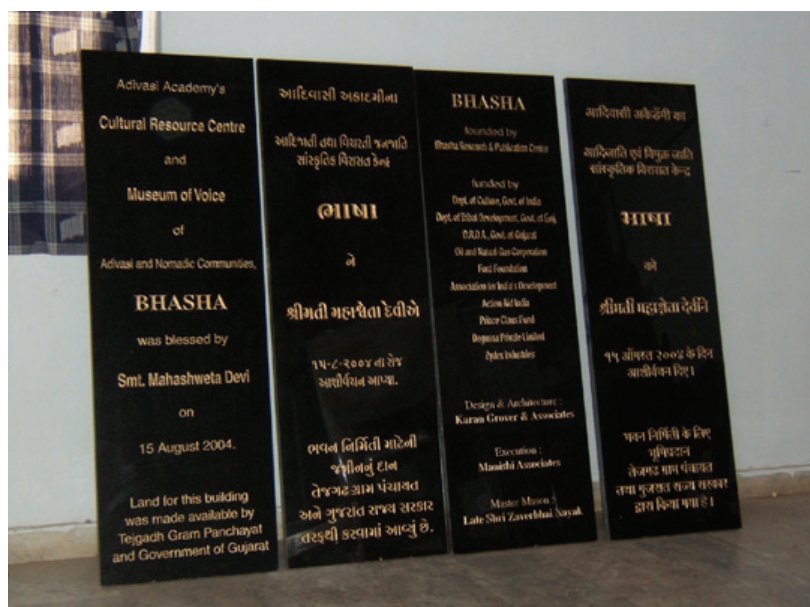 Adivasi Academy's
Cultural Resource Centre
and
Museum of Voice
of
Adivasi and Nomadic Communities,
BHASHA
was blessed by
Smt. Mahashweta Devi
on
15 August 2004.
Land for this building
was made available by
Tejgadh Gram Panchayat
and Government of Gujarat
આદિવાસી અકાદમીના
આદિજાતી તથા વિચરતી જનજાતિ
સાંસ્કૃતિક વિરાસત કેન્દ્ર
ભાષા
ને
શ્રીમતી મહાશ્વેતા દેવીએ
૧૫-૮-૨૦૦૪ ના રોજ
આશીર્વચન આપ્યા.
ભવન નિર્મિતી માટેની
જમીનનું દાન
તેજગઢ ગ્રામ પંચાયત
અને ગુજરાત રાજ્ય સરકાર
તરફથી કરવામાં આવ્યું છે.
BHASHA
founded by
Bhasha Research & Publication Centre
funded by
Dept. of Culture, Govt. of India
Dept. of Tribal Development, Govt. of Guj.
D.R.D.A., Govt. of Gujarat
Oil and Natural Gas Corporation
Ford Foundation
Association for India's Development
Action Aid India
Prince Claus Fund
Degussa Private Limited
Zydex Industries
Design & Architecture :
Karan Grover & Associates
Execution :
Manishi Associates
Master Mason :
Late Shri Zaverbhai Nayak
आदिवासी अकेडमी का
आदिजाति एवं विमुक्त जाति
सांस्कृतिक विरासत केन्द्र
भाषा
को
श्रीमती महाश्वेता देवीने
१५ ऑगस्त २००४ के दिन
आशीर्वचन दिए।
भवन निर्मिती के लिए
भूमिदान
तेजगढ ग्राम पंचायत
तथा गुजरात राज्य सरकार
द्वारा किया गया है।